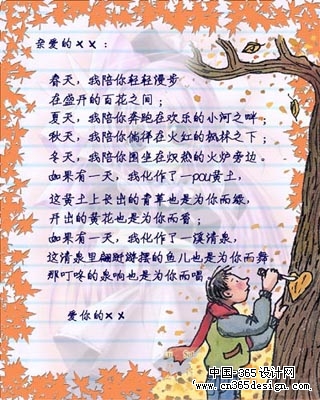 亲爱的××：
春天，我陪你轻轻漫步
在盛开的百花之间；
夏天，我陪你奔跑在欢乐的小河之畔；
秋天，我陪你徜徉在火红的枫林之下；
冬天，我陪你围坐在炽热的火炉旁边。
如果有一天，我化作了一pou黄土，
这黄土上长出的青草也是为你而绿，
开出的黄花也是为你而香；
如果有一天，我化作了一溪清泉，
这清泉里翩跹游摆的鱼儿也是为你而舞
那叮咚的泉响也是为你而唱
爱你的××
中国·365设计网
www.cn365design.com